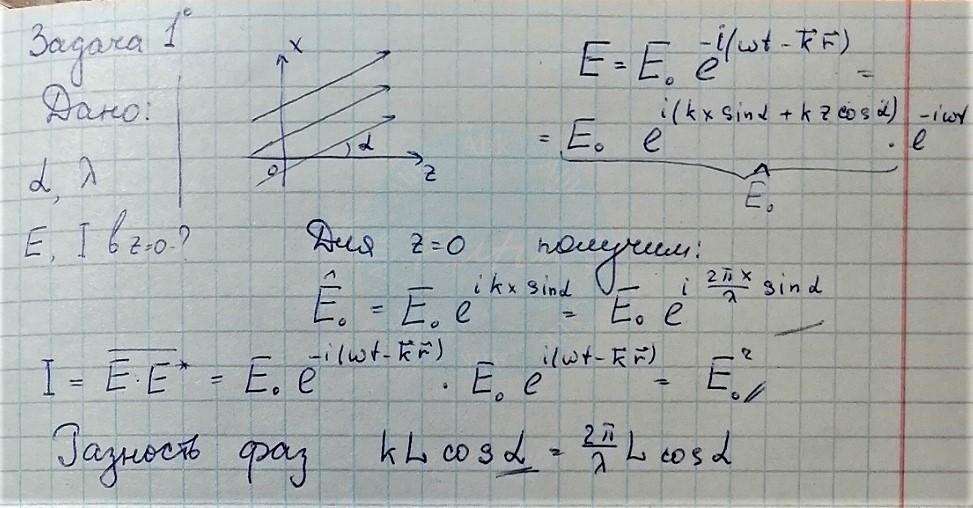 Задача 1°
Дано:
α, λ
E, I в z=0-?
x
α
0
z
E = E₀ e^{-i(ωt - k̄r̄)} =
= E₀ e^{i(kx sinα + kz cosα)} · e^{-iωt}
Ê₀
Для z=0 получим:
Ê₀ = E₀ e^{ikx sinα} = E₀ e^{i 2πx/λ sinα}
I = E·E* = E₀ e^{-i(ωt - k̄r̄)} · E₀ e^{i(ωt - k̄r̄)} = E₀²
Разность фаз kL cosα = 2π/λ L cosα